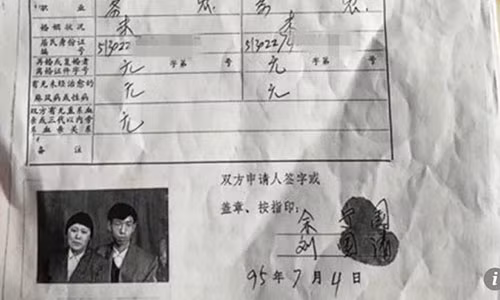 职 业 务 农 务 农
婚姻状况 未 未
居民身份证 513022 513022
编 号
再婚或复婚者 无 字第 号 无 字第 号
离婚证件字号
有无未经治愈的 无 无
麻风病或性病
双方有无直系血 无
亲或三代以内旁
系血亲关系
备 注
双方申请人签字或
盖章、按指印: 余 国
刘
95年7月4日